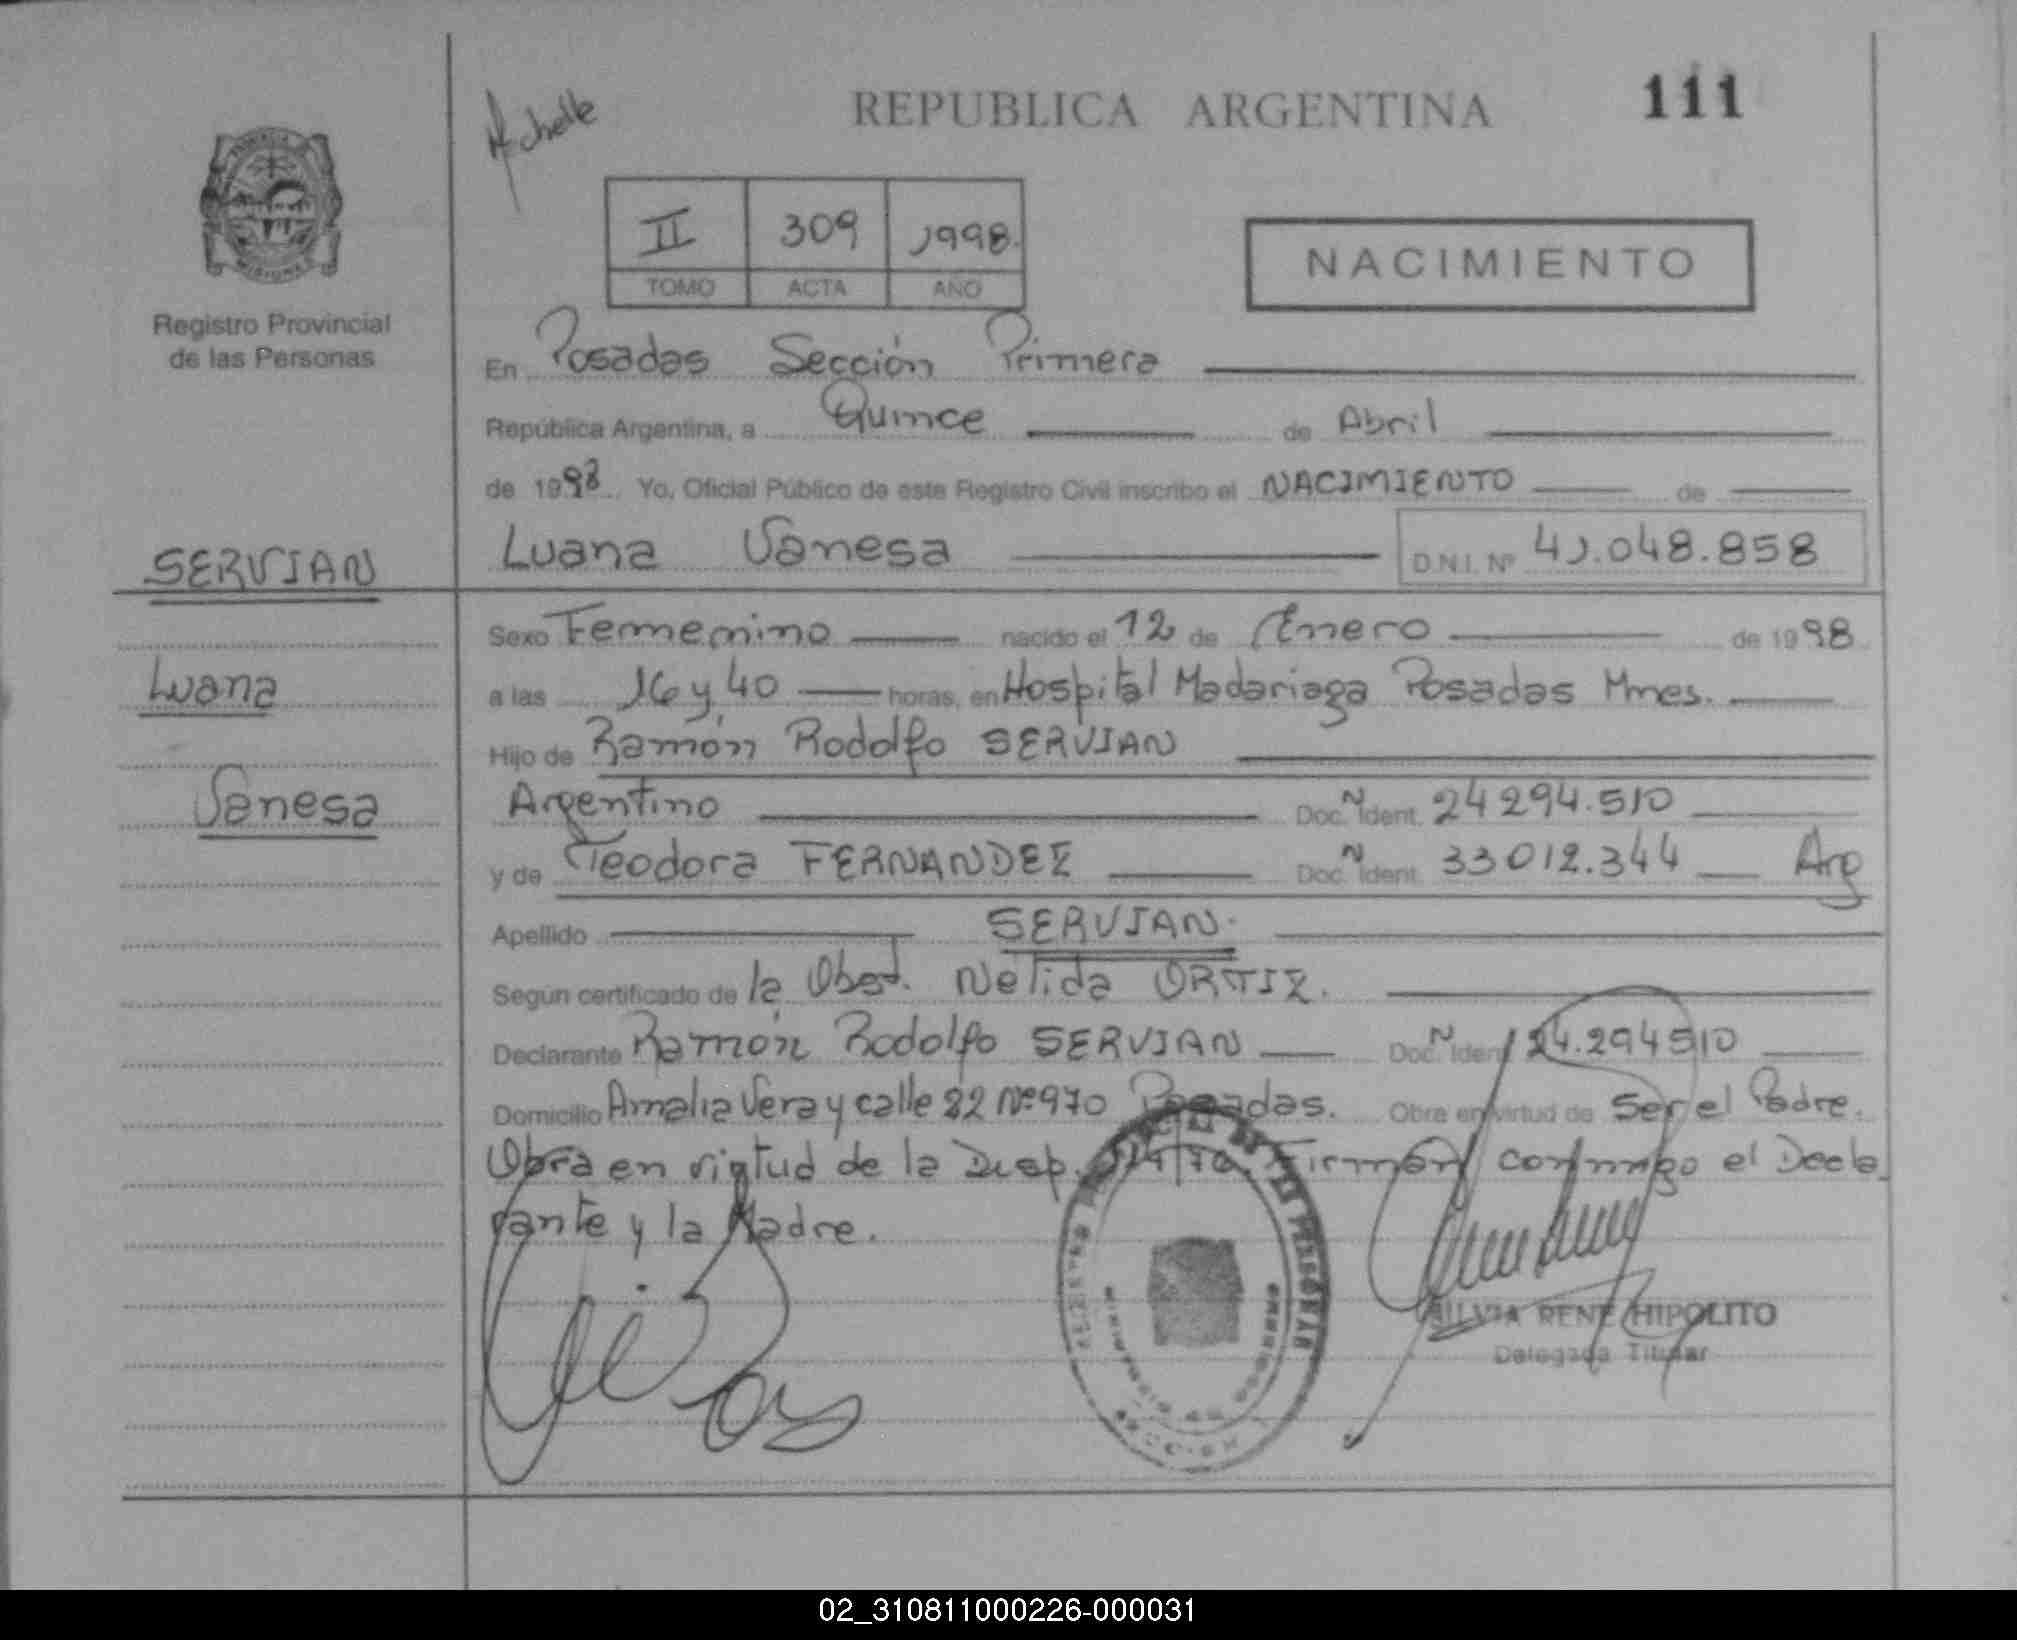 REPUBLICA ARGENTINA 111
II 309 1998.
TOMO ACTA AÑO
NACIMIENTO
Registro Provincial
de las Personas
En Posadas Sección Primera
República Argentina, a Quince de Abril
de 1998 Yo, Oficial Público de este Registro Civil inscribo el NACIMIENTO de
SERVIAN
Luana Vanesa D.N.I. Nº 41.048.858
Sexo Femenino nacido el 12 de Enero de 1998
Luana
a las 16 y 40 horas, en Hospital Madariaga Posadas Mnes.
Hijo de Ramón Rodolfo SERVIAN
Vanesa
Argentino Doc. Ident. 24294.510
y de Teodora FERNANDEZ Doc. Ident. 33012.344 Arg
Apellido SERVIAN.
Según certificado de la Obst. Nelida ORTIZ.
Declarante Ramón Rodolfo SERVIAN Doc. Ident. 24.294510
Domicilio Amalia Vera y calle 82 Nº 970 Posadas. Obra en virtud de Ser el Padre.
Obra en virtud de la Disp. Firman conmigo el Decla
rante y la Madre.
SILVIA RENE HIPOLITO
Delegada Titular
02_310811000226-000031